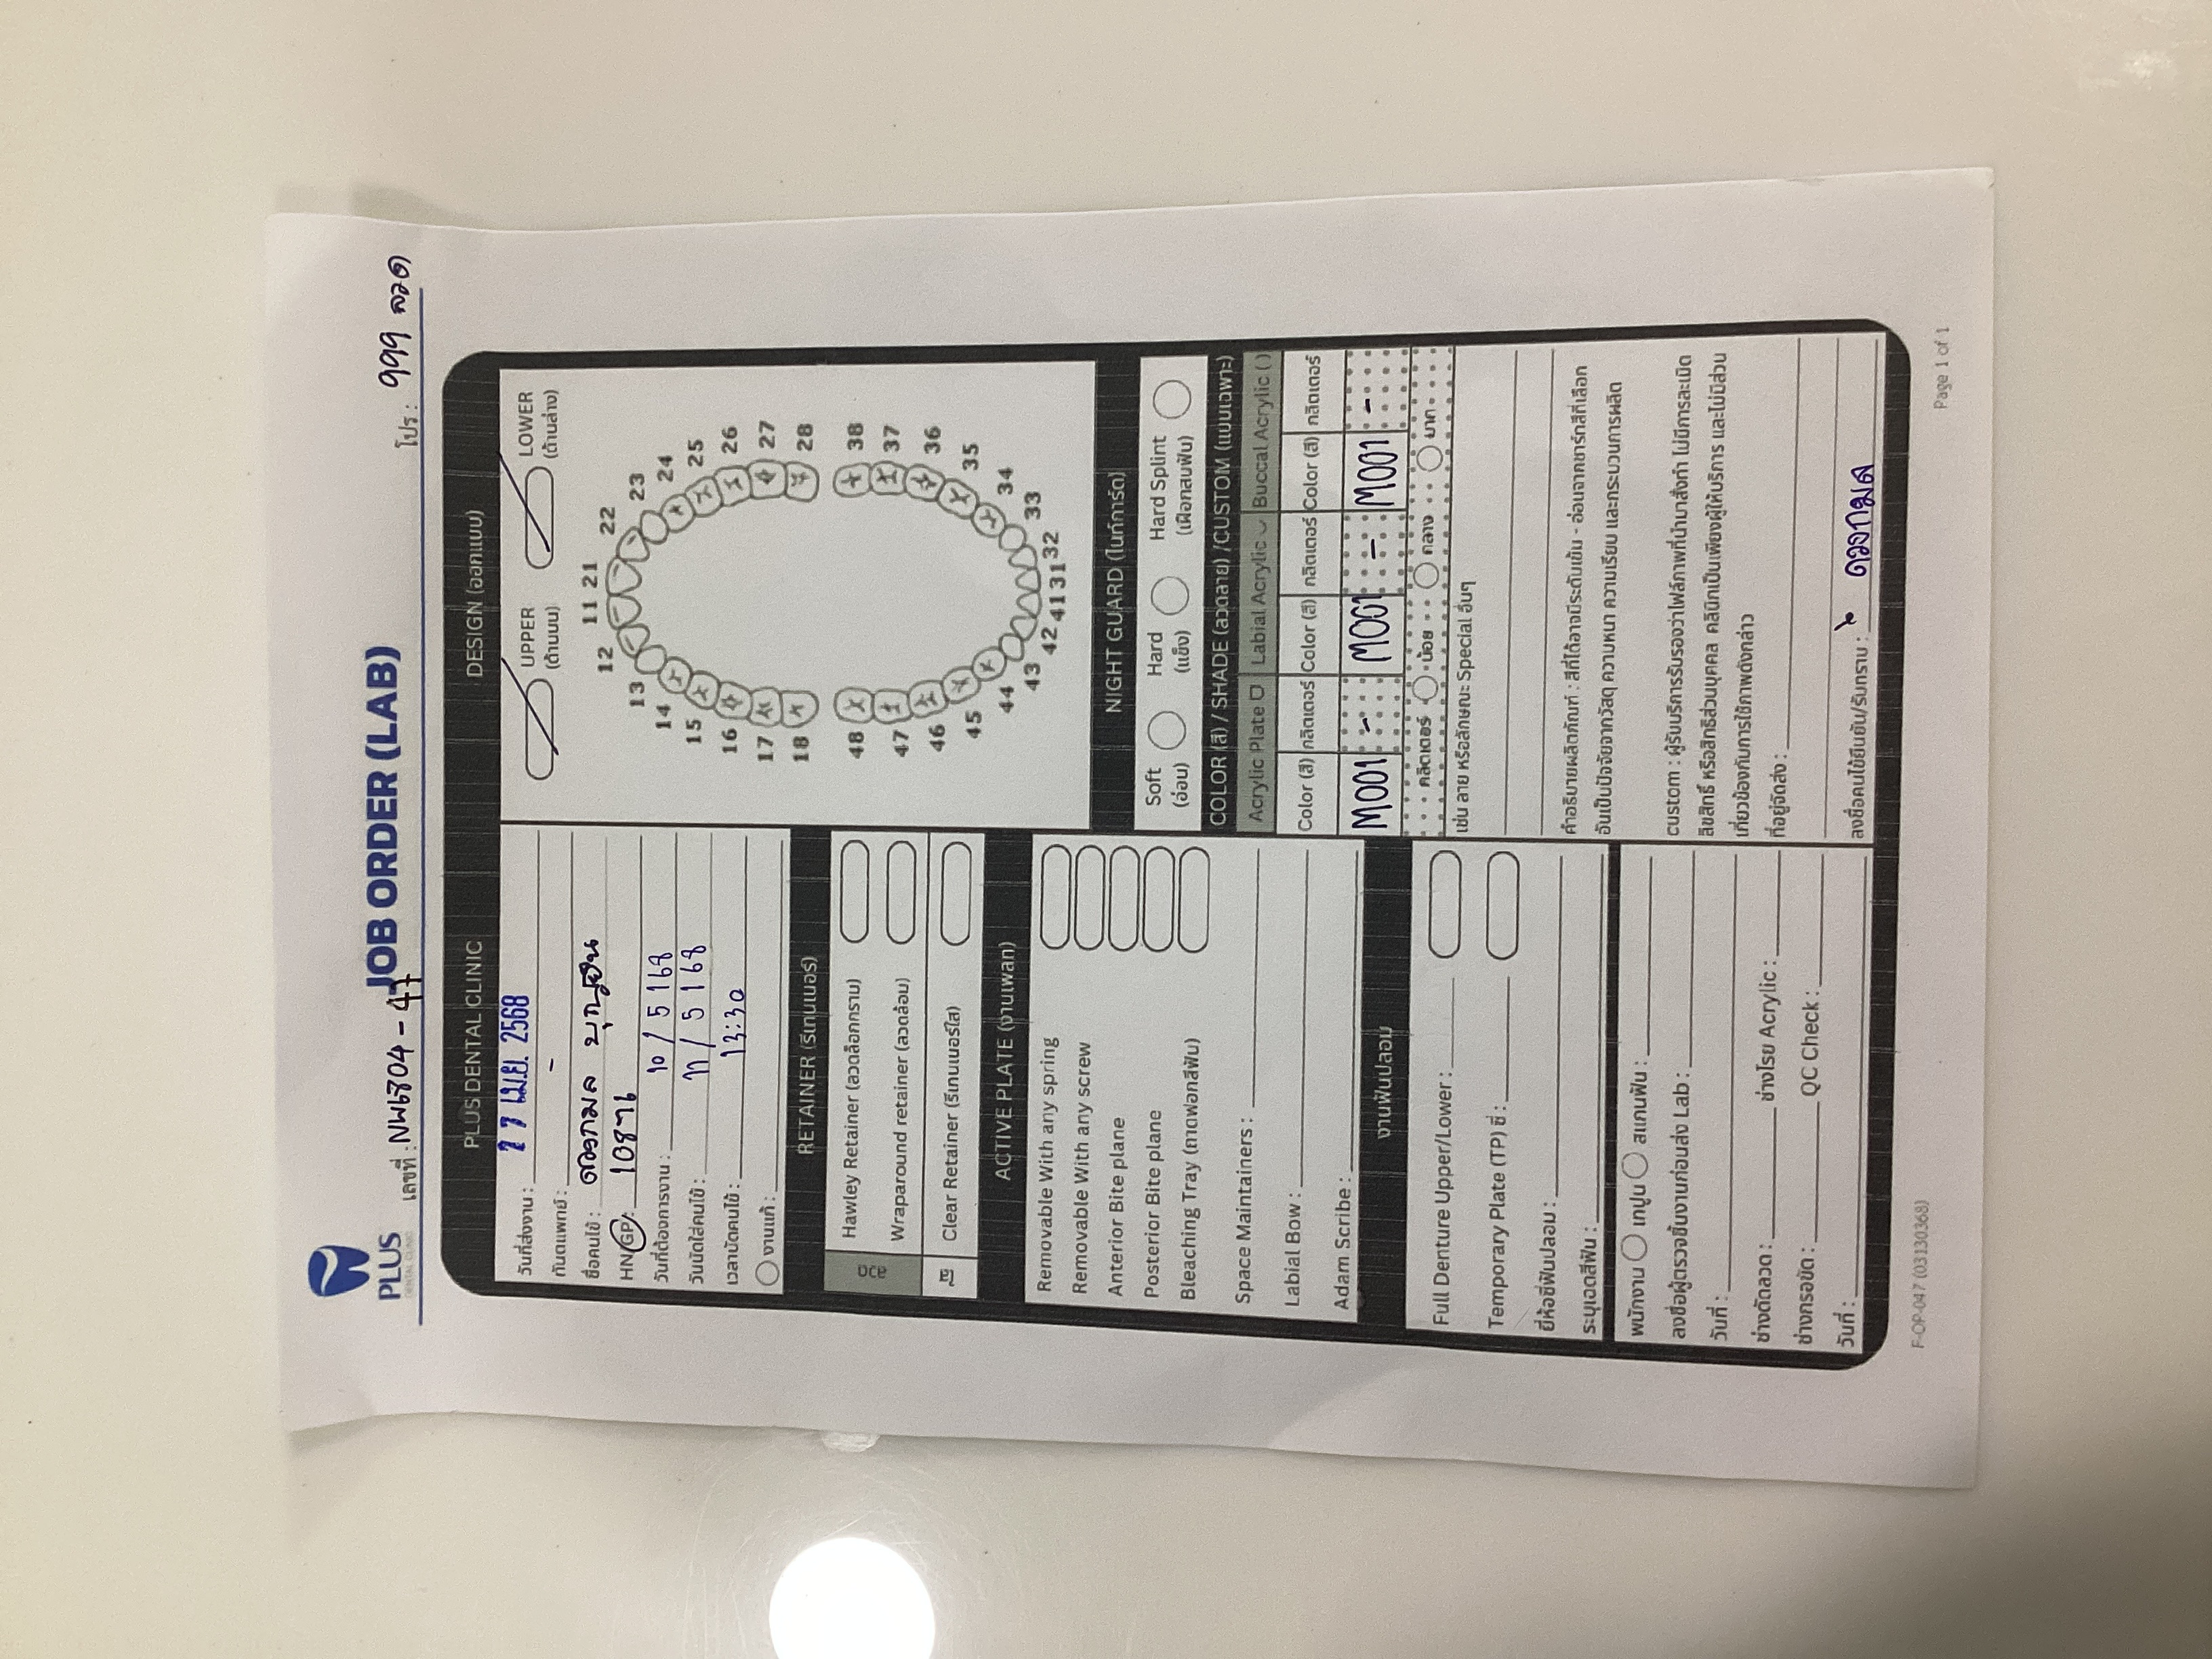 PLUS
DENTAL CLINIC
JOB ORDER (LAB)
เลขที่ : NW6804 - 47
โปร : 999 ลวด
PLUS DENTAL CLINIC
วันที่ส่งงาน : 27 เม.ย. 2568
ทันตแพทย์ : -
ชื่อคนไข้ : ดวงกมล
HN/GP : 10876
วันที่ต้องการงาน : 10 / 5 / 68
วันนัดใส่คนไข้ : 11 / 5 / 68
เวลานัดคนไข้ : 13:30
งานแก้ :
RETAINER (รีเทนเนอร์)
ลวด
Hawley Retainer (ลวดล็อกกราม)
Wraparound retainer (ลวดล้อม)
ใส
Clear Retainer (รีเทนเนอร์ใส)
ACTIVE PLATE (งานเพลท)
Removable With any spring
Removable With any screw
Anterior Bite plane
Posterior Bite plane
Bleaching Tray (ถาดฟอกสีฟัน)
Space Maintainers :
Labial Bow :
Adam Scribe :
งานฟันปลอม
Full Denture Upper/Lower :
Temporary Plate (TP) ซี่ :
ยี่ห้อซี่ฟันปลอม :
ระบุเฉดสีฟัน :
พนักงาน เทปูน สแกนฟัน :
ลงชื่อผู้ตรวจชิ้นงานก่อนส่ง Lab :
วันที่ :
ช่างดัดลวด : ช่างโรย Acrylic :
ช่างกรอขัด : QC Check :
วันที่ :
DESIGN (ออกแบบ)
UPPER
(ด้านบน)
LOWER
(ด้านล่าง)
11 21
12 22
13 23
14 24
15 25
16 26
17 27
18 28
48 38
47 37
46 36
45 35
44 34
43 33
42 41 31 32
NIGHT GUARD (ไนท์การ์ด)
Soft
(อ่อน)
Hard
(แข็ง)
Hard Splint
(เฝือกสบฟัน)
COLOR (สี) / SHADE (ลวดลาย) /CUSTOM (แบบเฉพาะ)
Acrylic Plate Labial Acrylic Buccal Acrylic ( )
Color (สี) กลิตเตอร์ Color (สี) กลิตเตอร์ Color (สี) กลิตเตอร์
M001 - M001 - M001 -
คลิตเตอร์ น้อย กลาง มาก
เช่น ลาย หรือลักษณะ Special อื่นๆ
คำอธิบายผลิตภัณฑ์ : สีที่ได้อาจมีระดับเข้ม - อ่อนจากชาร์ทสีที่เลือก
อันเป็นปัจจัยจากวัสดุ ความหนา ความเรียบ และกระบวนการผลิต
custom : ผู้รับบริการรับรองว่าไฟล์ภาพที่นำมาสั่งทำ ไม่มีการละเมิด
ลิขสิทธิ์ หรือสิทธิส่วนบุคคล คลินิกเป็นเพียงผู้ให้บริการ และไม่มีส่วน
เกี่ยวข้องกับการใช้ภาพดังกล่าว
ที่อยู่จัดส่ง :
ลงชื่อคนไข้ยืนยัน/รับทราบ : ดวงกมล
F-OP-047 (03130368)
Page 1 of 1